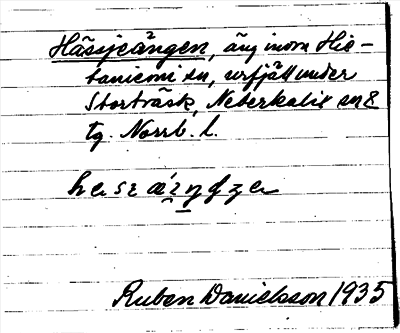 Häsijeängen, äng inom Hie-
taniemi sn, urfjäll under
Storträsk, Neder Kalix sn &
tg. Norrb. l.
Ruben Danielsson 1935